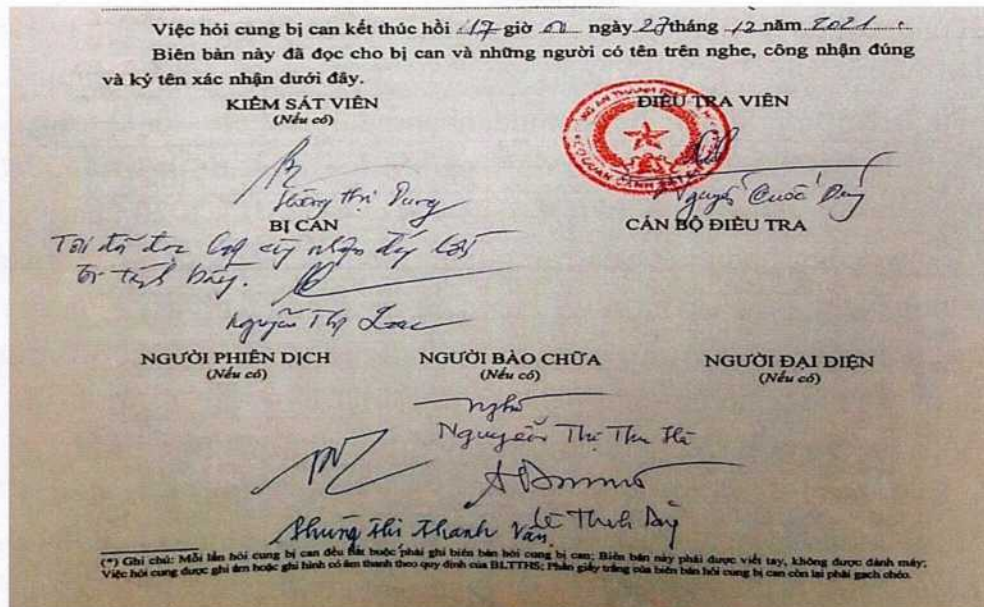 Việc hỏi cung bị can kết thúc hồi 17 giờ 00 ngày 27 tháng 12 năm 2021.
Biên bản này đã đọc cho bị can và những người có tên trên nghe, công nhận đúng
và ký tên xác nhận dưới đây.
KIỂM SÁT VIÊN
(Nếu có)
ĐIỀU TRA VIÊN
Thị Dung
Nguyễn Quốc
BỊ CAN
CÁN BỘ ĐIỀU TRA
Tôi đã đọc
Nguyễn Thị
NGƯỜI PHIÊN DỊCH
(Nếu có)
NGƯỜI BÀO CHỮA
(Nếu có)
NGƯỜI ĐẠI DIỆN
(Nếu có)
Nguyễn Thị Thu Hà
Phùng Thị Thanh Vân
Lê Thành
(*) Ghi chú: Mỗi lần hỏi cung bị can đều bắt buộc phải ghi biên bản hỏi cung bị can; Biên bản này phải được viết tay, không được đánh máy;
Việc hỏi cung được ghi âm hoặc ghi hình có âm thanh theo quy định của BLTTHS; Phần giấy trắng của biên bản hỏi cung bị can còn lại phải gạch chéo.